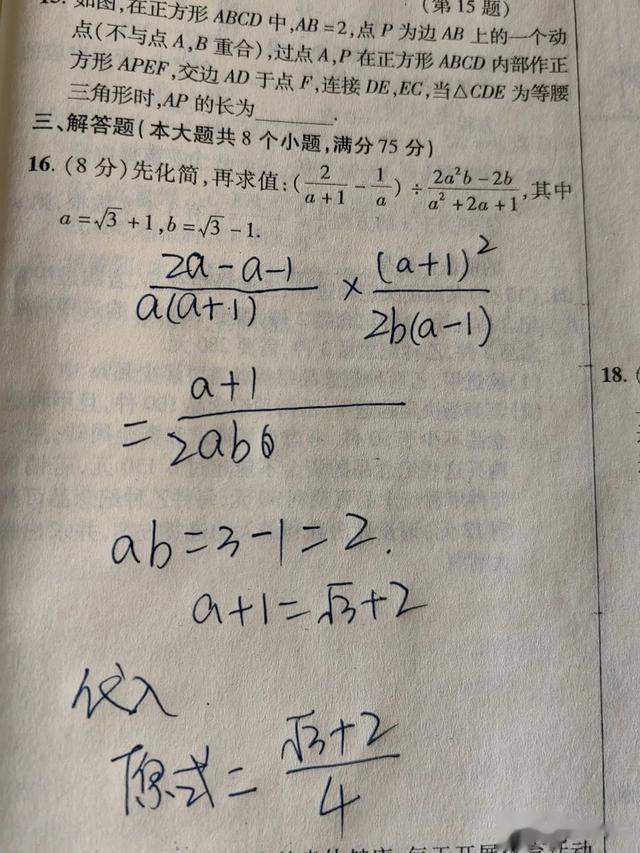 15. 如图,在正方形ABCD中,AB=2,点P为边AB上的一个动
(第15题)
点(不与点A,B重合),过点A,P在正方形ABCD内部作正
方形APEF,交边AD于点F,连接DE,EC,当△CDE为等腰
三角形时,AP的长为______.
三、解答题(本大题共8个小题,满分75分)
16. (8分)先化简,再求值:(2/(a+1) - 1/a) ÷ (2a²b-2b)/(a²+2a+1),其中
a=√3+1,b=√3-1.
(2a-a-1)/(a(a+1)) × (a+1)²/(2b(a-1))
= (a+1)/(2ab)
ab=3-1=2.
a+1=√3+2
代入
原式=(√3+2)/4
18.